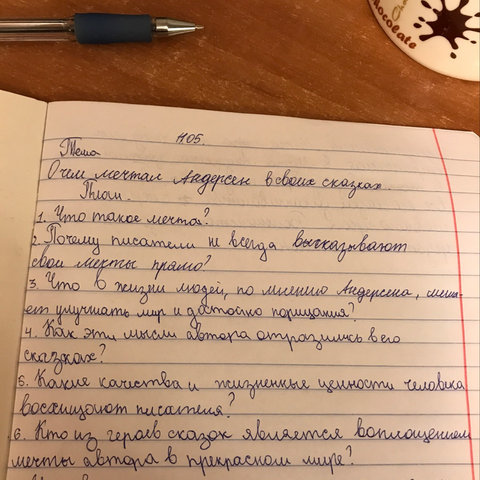 Chocolate
11.05.
Тема
О чем мечтал Андерсен в своих сказках
План.
1. Что такое мечта?
2. Почему писатели не всегда высказывают
свои мечты прямо?
3. Что в жизни людей, по мнению Андерсена, меша-
ет улучшать мир и достойно порицания?
4. Как эти мысли автора отразились в его
сказках?
5. Какие качества и жизненные ценности человека
восхищают писателя?
6. Кто из героев сказок является воплощением
мечты автора в прекрасном мире?